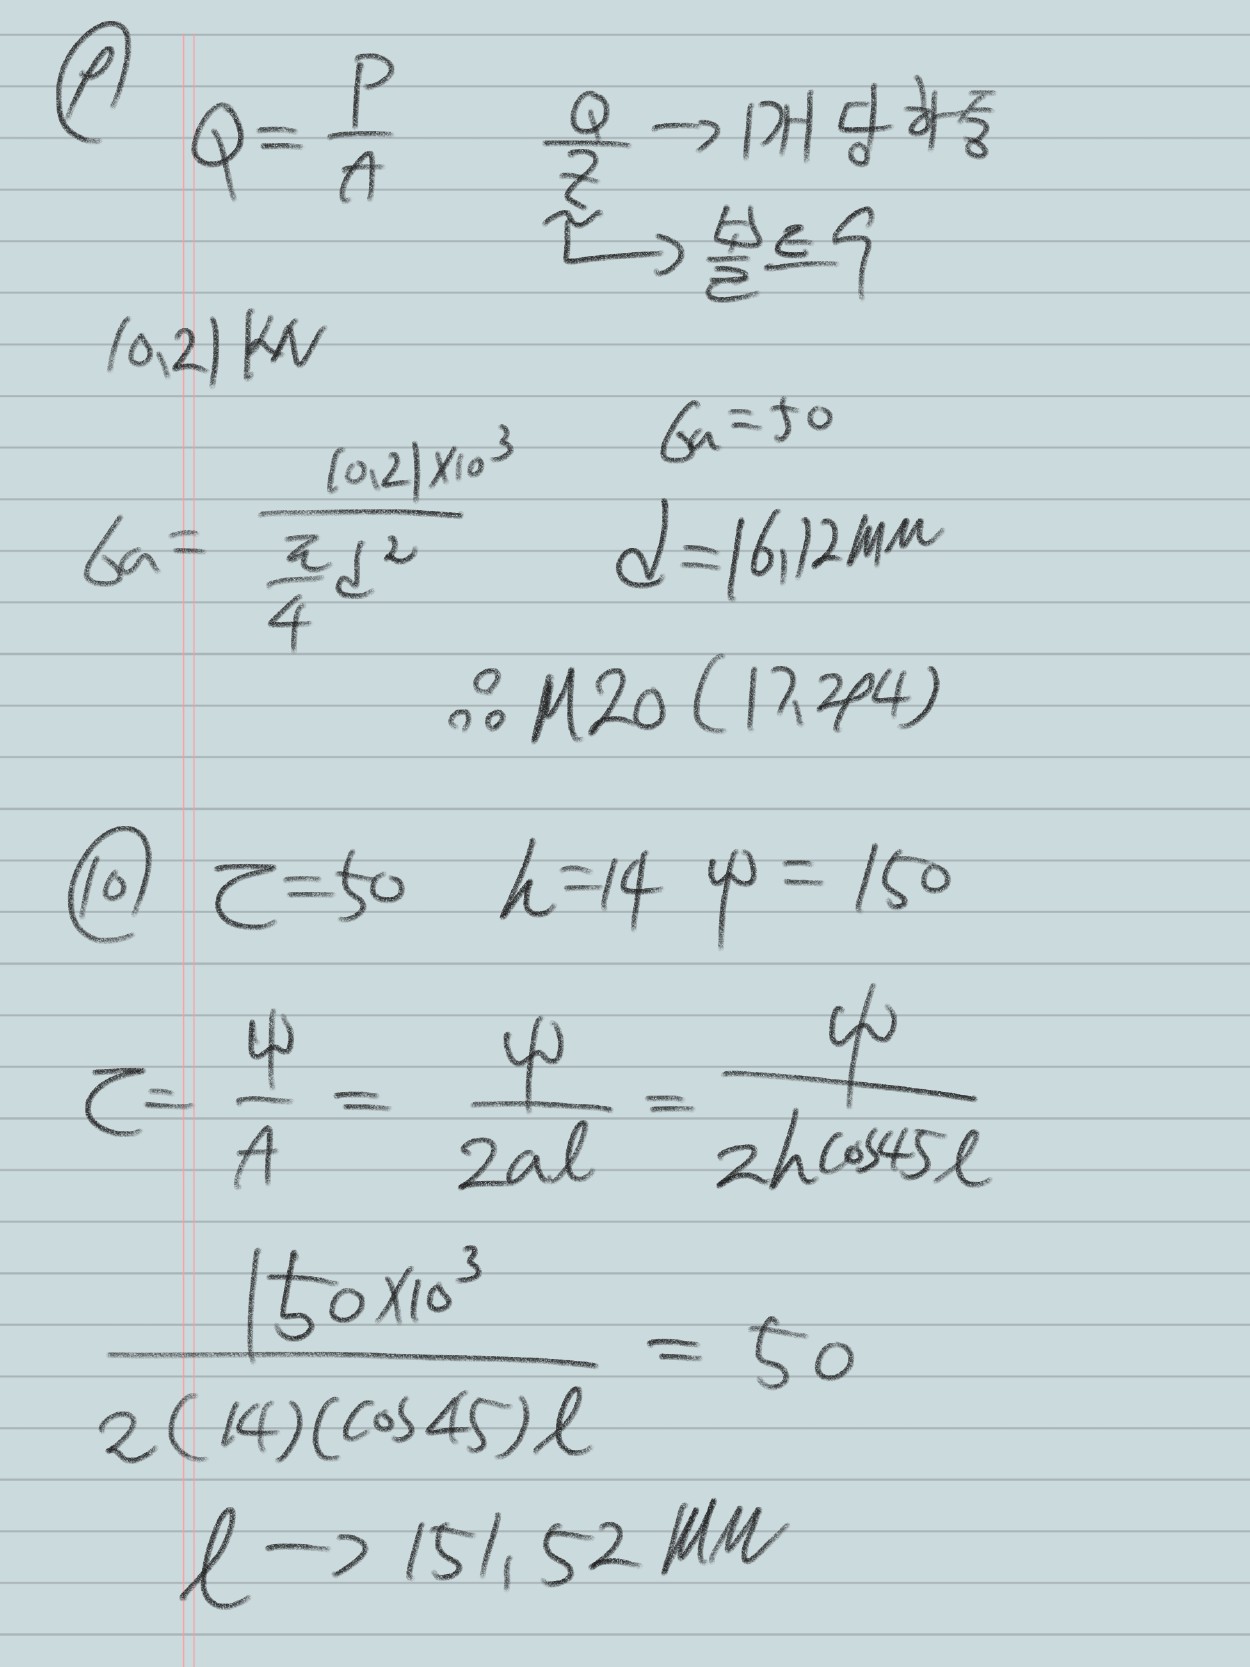 ⑨
Q = P/A   Q/Z → 1개당 하중
→ 볼트수
10.21 kN
σa = 50
σa = 10.21×10³ / (π/4 d²)   d = 16.12mm
∴ M20 (17.294)
⑩ τ = 50   h = 14   ψ = 150
τ = ψ/A = ψ/2al = ψ/2hcos45l
150×10³ / 2(14)(cos45)l = 50
l → 151.52 mm